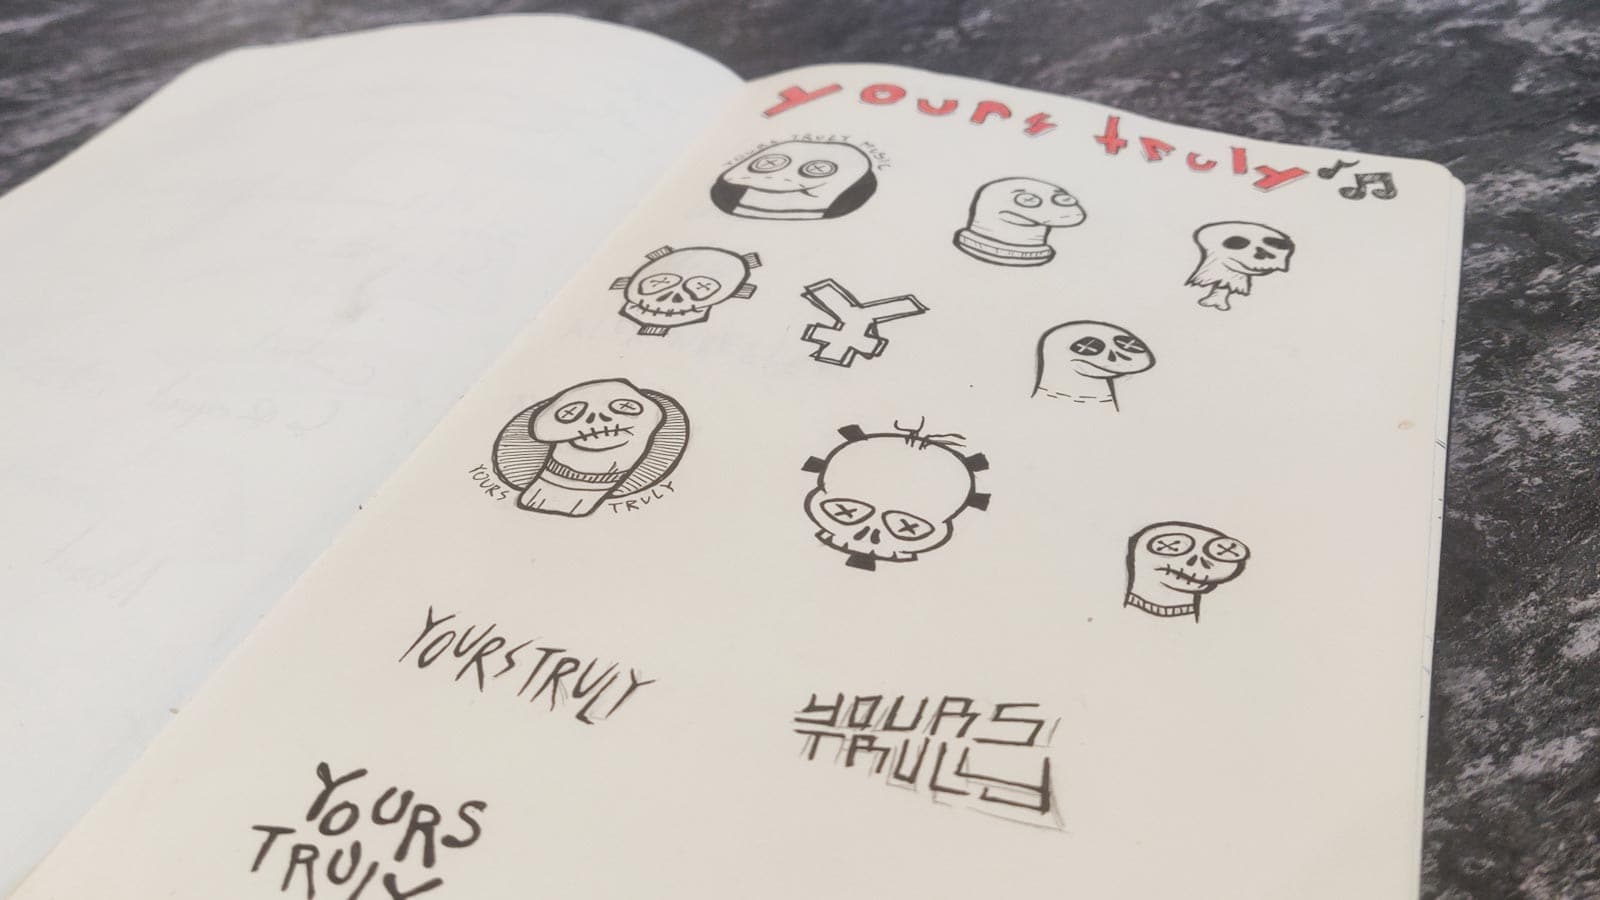 yours truly
YOURS TRULY MUSIC
YOURS TRULY
YOURS TRULY
YOURS
TRULY
YOURS
TRULY